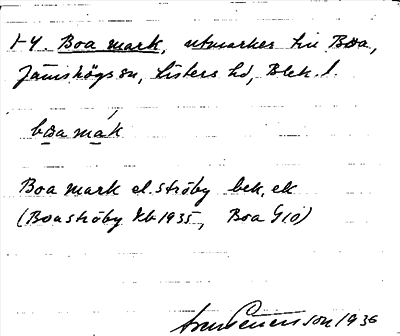 t-y. Boa mark, utmarker till Boa,
Jämshögs sn, Listers hd, Blek. l.
boa mák
Boa mark el. ströby bek. ek
(Boaströby Kb 1935, Boa G10)
son 1936